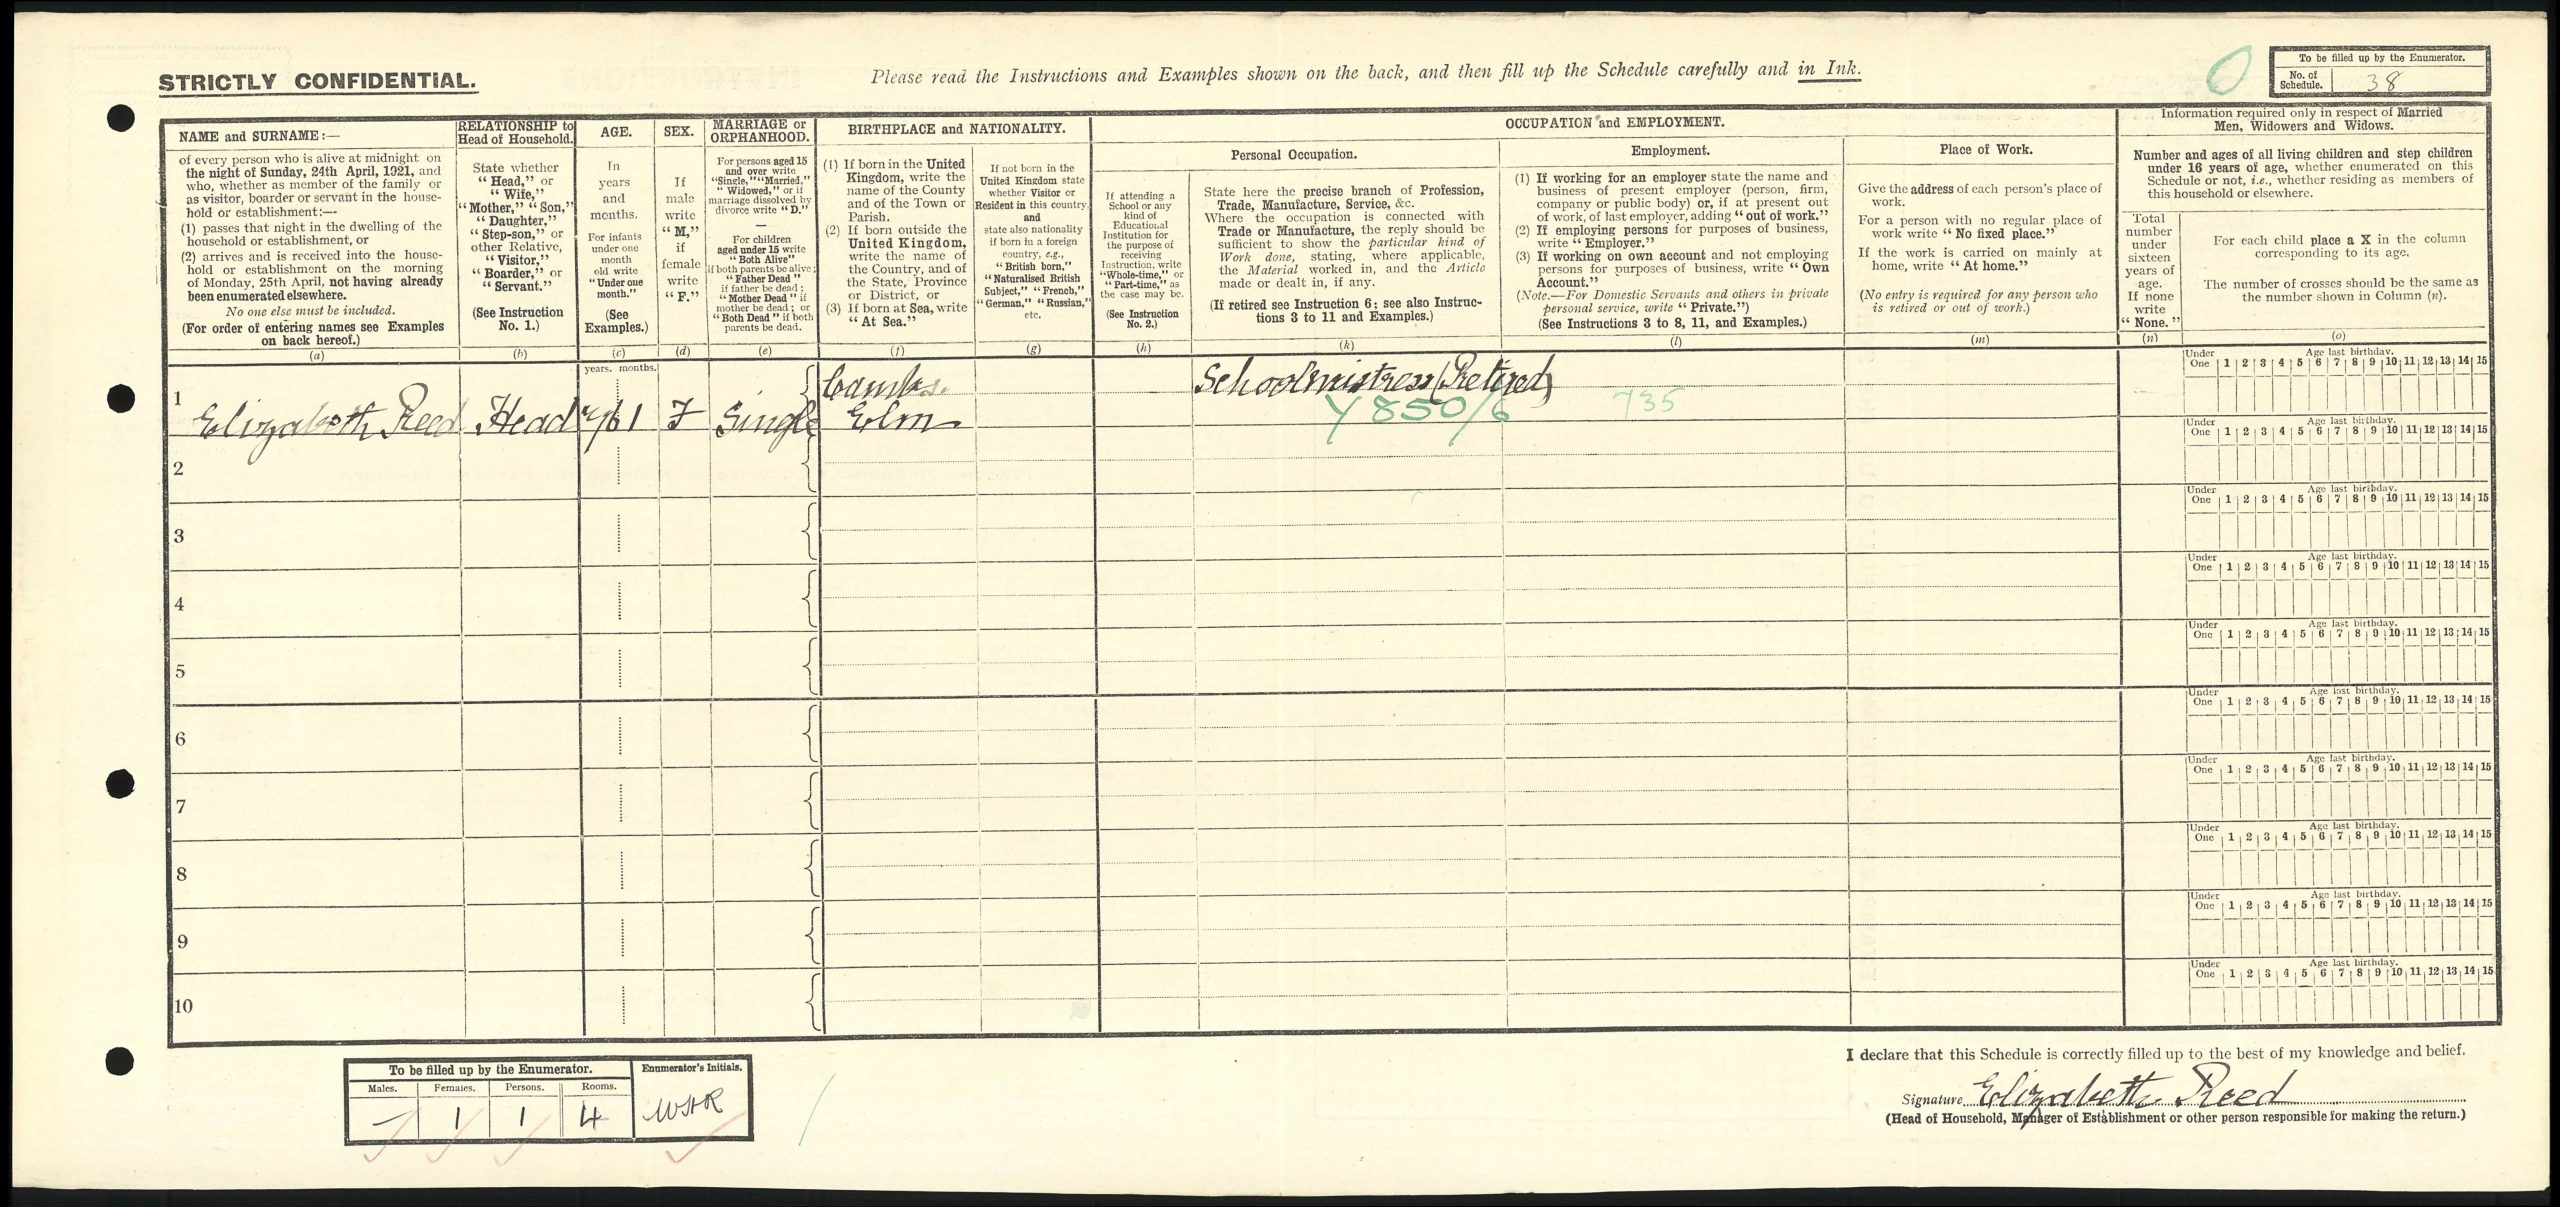 STRICTLY CONFIDENTIAL.
Please read the Instructions and Examples shown on the back, and then fill up the Schedule carefully and in Ink.
0
To be filled up by the Enumerator.
No. of Schedule. 38
NAME and SURNAME:—
of every person who is alive at midnight on
the night of Sunday, 24th April, 1921, and
who, whether as member of the family or
as visitor, boarder or servant in the house-
hold or establishment:—
(1) passes that night in the dwelling of the
household or establishment, or
(2) arrives and is received into the house-
hold or establishment on the morning
of Monday, 25th April, not having already
been enumerated elsewhere.
No one else must be included.
(For order of entering names see Examples
on back hereof.)
(a)
RELATIONSHIP to
Head of Household.
State whether
"Head," or
"Wife,"
"Mother," "Son,"
"Daughter."
"Step-son," or
other Relative,
"Visitor,"
"Boarder," or
"Servant."
(See Instruction
No. 1.)
(b)
AGE.
In
years
and
months.
For infants
under one
month
old write
"Under one
month."
(See
Examples.)
(c)
SEX.
If
male
write
"M,"
if
female
write
"F."
(d)
MARRIAGE or
ORPHANHOOD.
For persons aged 15
and over write
"Single," "Married,"
"Widowed," or if
marriage dissolved by
divorce write "D."
—
For children
aged under 15 write
"Both Alive"
if both parents be alive;
"Father Dead"
if father be dead;
"Mother Dead" if
mother be dead; or
"Both Dead" if both
parents be dead.
(e)
BIRTHPLACE and NATIONALITY.
(1) If born in the United
Kingdom, write the
name of the County
and of the Town or
Parish.
(2) If born outside the
United Kingdom,
write the name of
the Country, and of
the State, Province
or District, or
(3) If born at Sea, write
"At Sea."
(f)
If not born in the
United Kingdom state
whether Visitor or
Resident in this country,
and
state also nationality
if born in a foreign
country, e.g.,
"British born,"
"Naturalised British
Subject," "French,"
"German," "Russian,"
etc.
(g)
OCCUPATION and EMPLOYMENT.
If attending a
School or any
kind of
Educational
Institution for
the purpose of
receiving
Instruction, write
"Whole-time," or
"Part-time," as
the case may be.
(See Instruction
No. 2.)
(h)
Personal Occupation.
State here the precise branch of Profession,
Trade, Manufacture, Service, &c.
Where the occupation is connected with
Trade or Manufacture, the reply should be
sufficient to show the particular kind of
Work done, stating, where applicable,
the Material worked in, and the Article
made or dealt in, if any.
(If retired see Instruction 6; see also Instruc-
tions 3 to 11 and Examples.)
(k)
Employment.
(1) If working for an employer state the name and
business of present employer (person, firm,
company or public body) or, if at present out
of work, of last employer, adding "out of work."
(2) If employing persons for purposes of business,
write "Employer."
(3) If working on own account and not employing
persons for purposes of business, write "Own
Account."
(Note.—For Domestic Servants and others in private
personal service, write "Private.")
(See Instructions 3 to 8, 11, and Examples.)
(l)
Place of Work.
Give the address of each person's place of
work.
For a person with no regular place of
work write "No fixed place."
If the work is carried on mainly at
home, write "At home."
(No entry is required for any person who
is retired or out of work.)
(m)
Information required only in respect of Married
Men, Widowers and Widows.
Number and ages of all living children and step children
under 16 years of age, whether enumerated on this
Schedule or not, i.e., whether residing as members of
this household or elsewhere.
Total
number
under
sixteen
years of
age.
If none
write
"None."
(n)
For each child place a X in the column
corresponding to its age.
The number of crosses should be the same as
the number shown in Column (n).
(o)
years. months.
Under One Age last birthday. 1 2 3 4 5 6 7 8 9 10 11 12 13 14 15
1 Elizabeth Reed Head 61 F Single Cambs. Elm Schoolmistress (Retired)
850/6 735
2
Under One Age last birthday. 1 2 3 4 5 6 7 8 9 10 11 12 13 14 15
3
Under One Age last birthday. 1 2 3 4 5 6 7 8 9 10 11 12 13 14 15
4
Under One Age last birthday. 1 2 3 4 5 6 7 8 9 10 11 12 13 14 15
5
Under One Age last birthday. 1 2 3 4 5 6 7 8 9 10 11 12 13 14 15
6
Under One Age last birthday. 1 2 3 4 5 6 7 8 9 10 11 12 13 14 15
7
Under One Age last birthday. 1 2 3 4 5 6 7 8 9 10 11 12 13 14 15
8
Under One Age last birthday. 1 2 3 4 5 6 7 8 9 10 11 12 13 14 15
9
Under One Age last birthday. 1 2 3 4 5 6 7 8 9 10 11 12 13 14 15
10
Under One Age last birthday. 1 2 3 4 5 6 7 8 9 10 11 12 13 14 15
To be filled up by the Enumerator. Enumerator's Initials.
Males. Females. Persons. Rooms.
— 1 1 4 WHR
I declare that this Schedule is correctly filled up to the best of my knowledge and belief.
Signature Elizabeth Reed
(Head of Household, Manager of Establishment or other person responsible for making the return.)